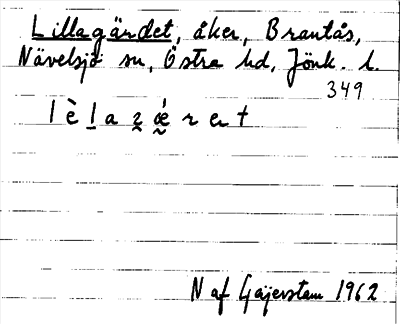 Lillagärdet, åker, Brantås,
Nävelsjö sn, Östra hd, Jönk. l.
349
l è l a z æ r e t
N af Geijerstam 1962